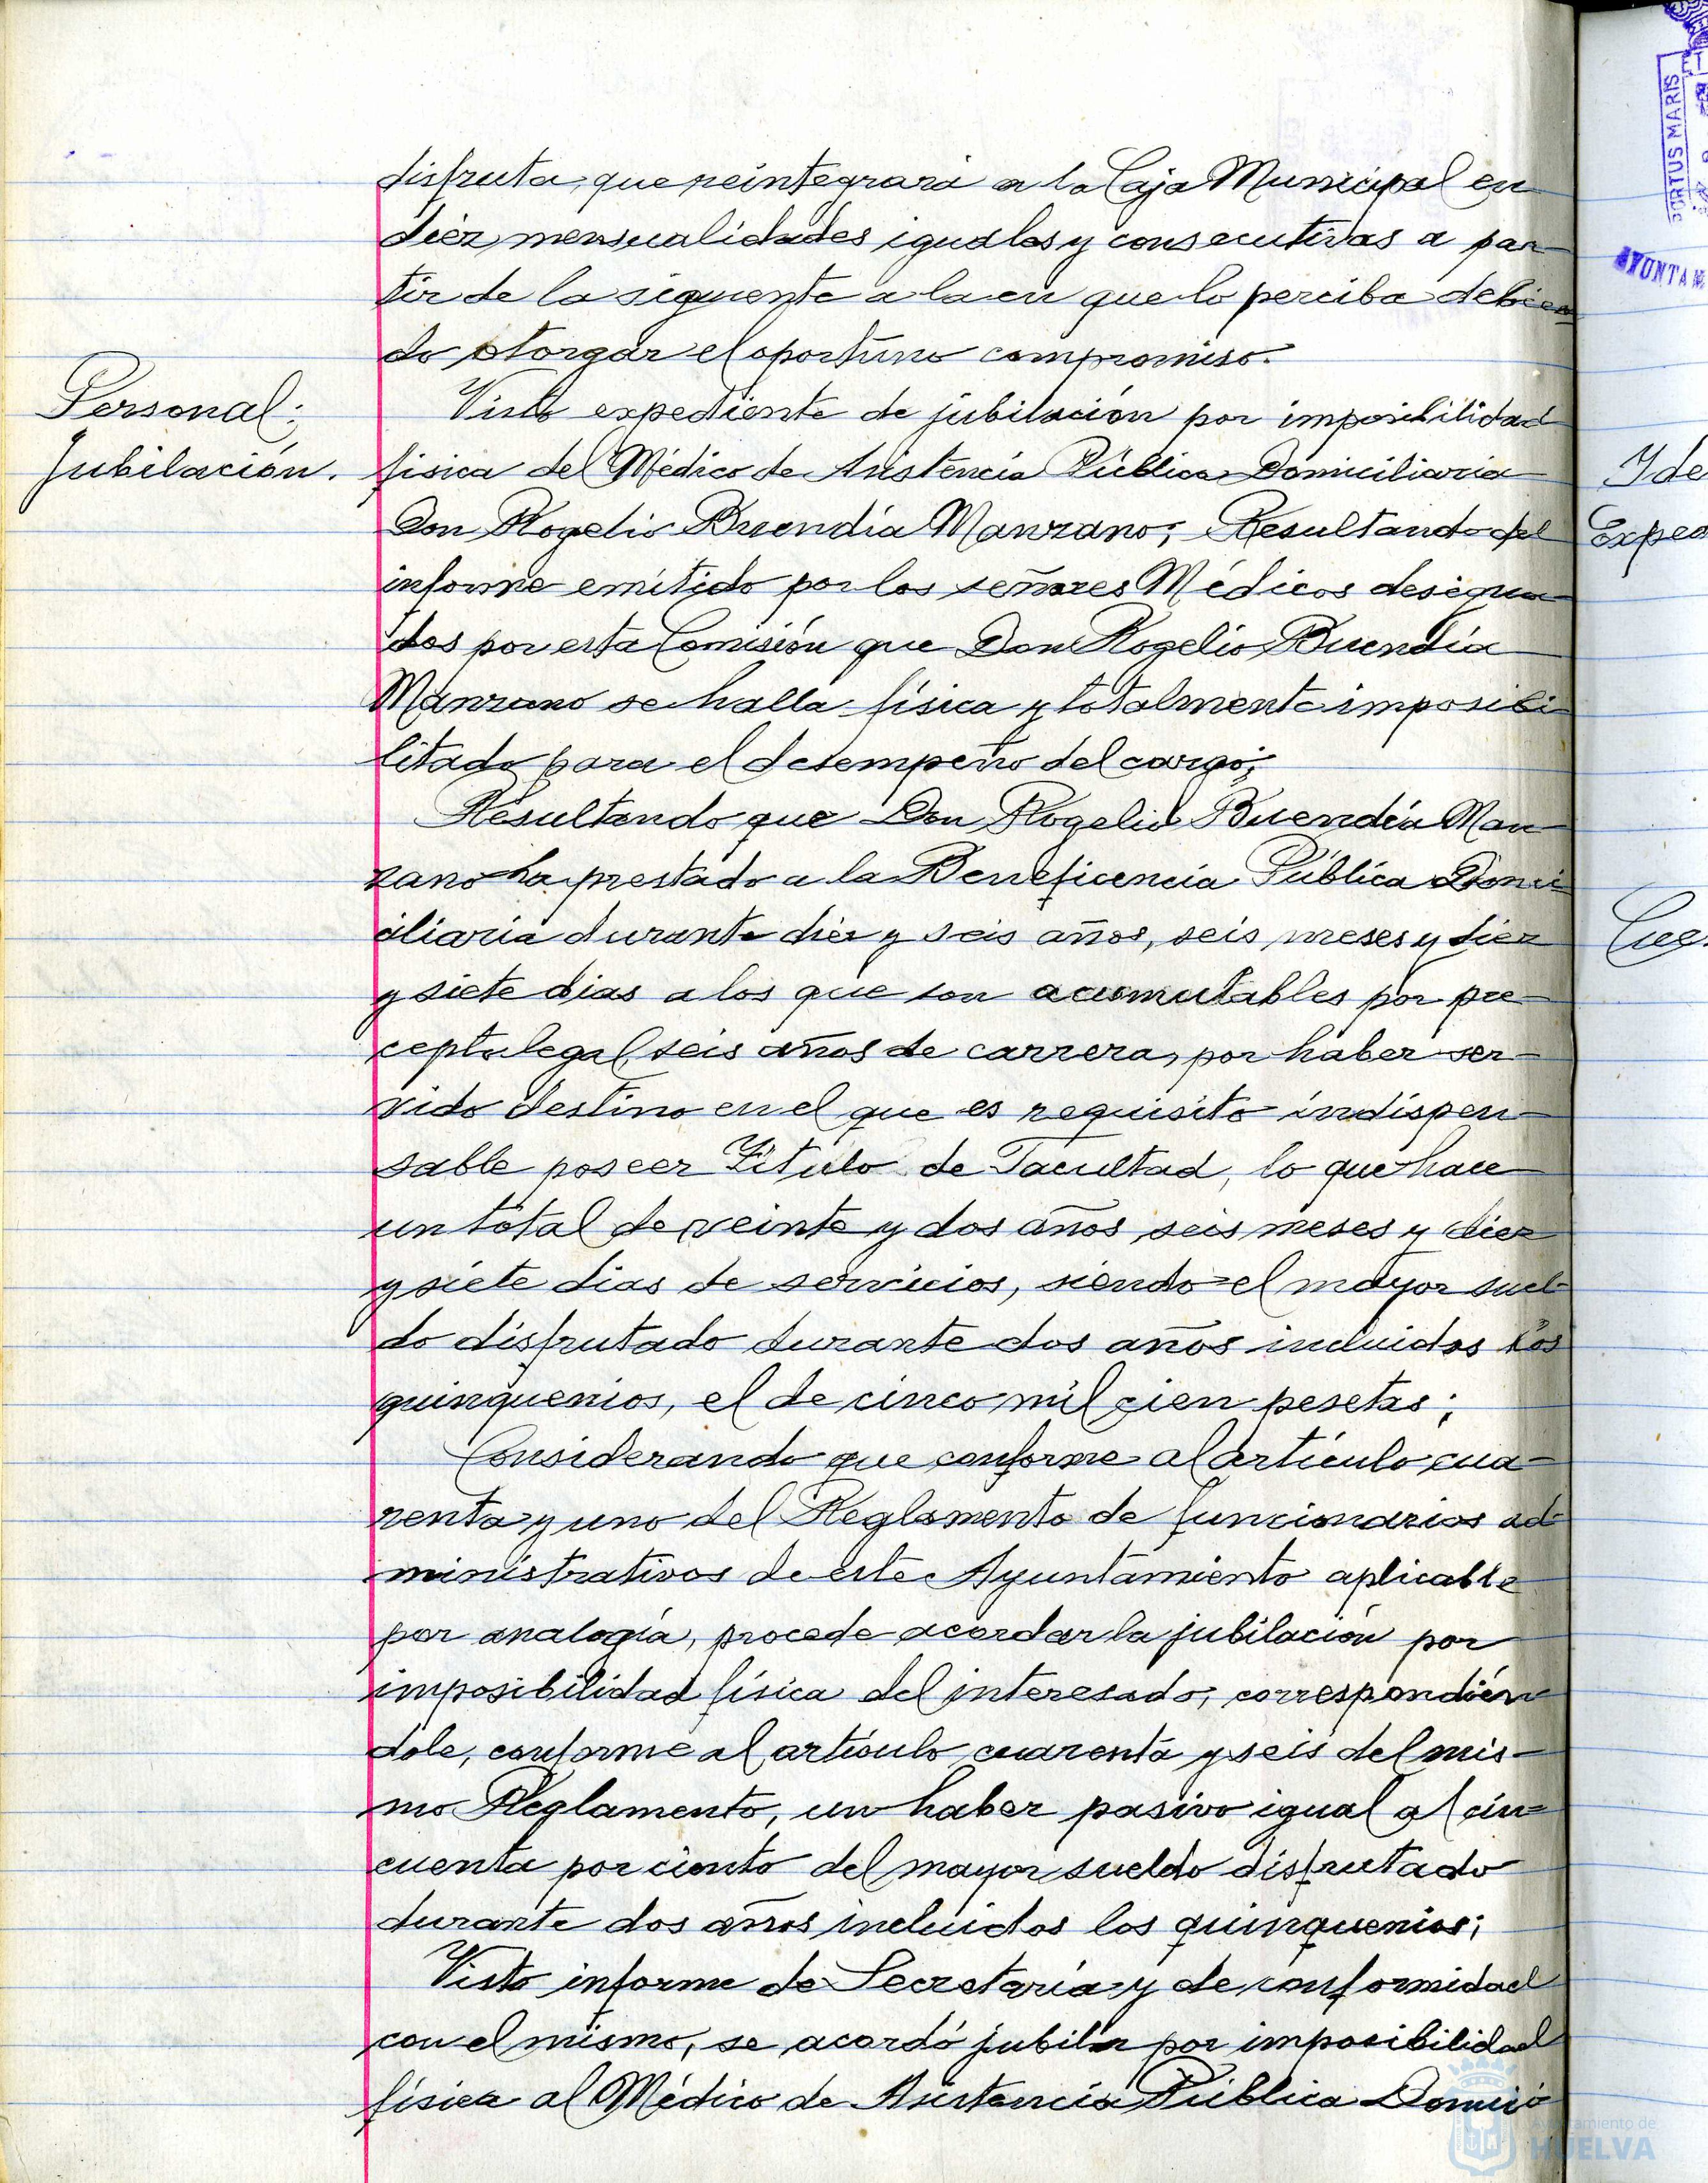 disfruta, que reintegrará a la Caja Municipal en
diez mensualidades iguales y consecutivas a par-
tir de la siguiente a la en que lo perciba debien
do otorgar el oportuno compromiso.
Personal:
Jubilación.
Visto expediente de jubilación por imposibilidad
física del Médico de Asistencia Pública Domiciliaria
Don Rogelio Buendía Manzano; Resultando del
informe emitido por los señores Médicos designa-
dos por esta Comisión que Don Rogelio Buendía
Manzano se halla física y totalmente imposibi-
litado para el desempeño del cargo;
Resultando que Don Rogelio Buendía Man-
zano ha prestado a la Beneficencia Pública Domi
ciliaria durante diez y seis años, seis meses y diez
y siete dias a los que son acumutables por pre-
cepto legal, seis años de carrera, por haber ser-
vido destino en el que es requisito indispen-
sable poseer Título de Facultad, lo que hace
un total de veinte y dos años seis meses y diez
y siete dias de servicios, siendo el mayor suel-
do disfrutado durante dos años incluidos los
quinquenios, el de cinco mil cien pesetas;
Considerando que conforme al artículo cua-
renta y uno del Reglamento de funcionarios ad-
ministrativos de este Ayuntamiento aplicable
por analogía, procede acordar la jubilación por
imposibilidad física del interesado, correspondién-
dole, conforme al artículo cuarenta y seis del mis-
mo Reglamento, un haber pasivo igual al cin-
cuenta por ciento del mayor sueldo disfrutado
durante dos años incluidos los quinquenios;
Visto informe de Secretaría y de conformidad
con el mismo, se acordó jubilar por imposibilidad
física al Médico de Asistencia Pública Domici
PORTUS MARIS
AYUNTAM
Ide
Exped
Ayuntamiento de
HUELVA